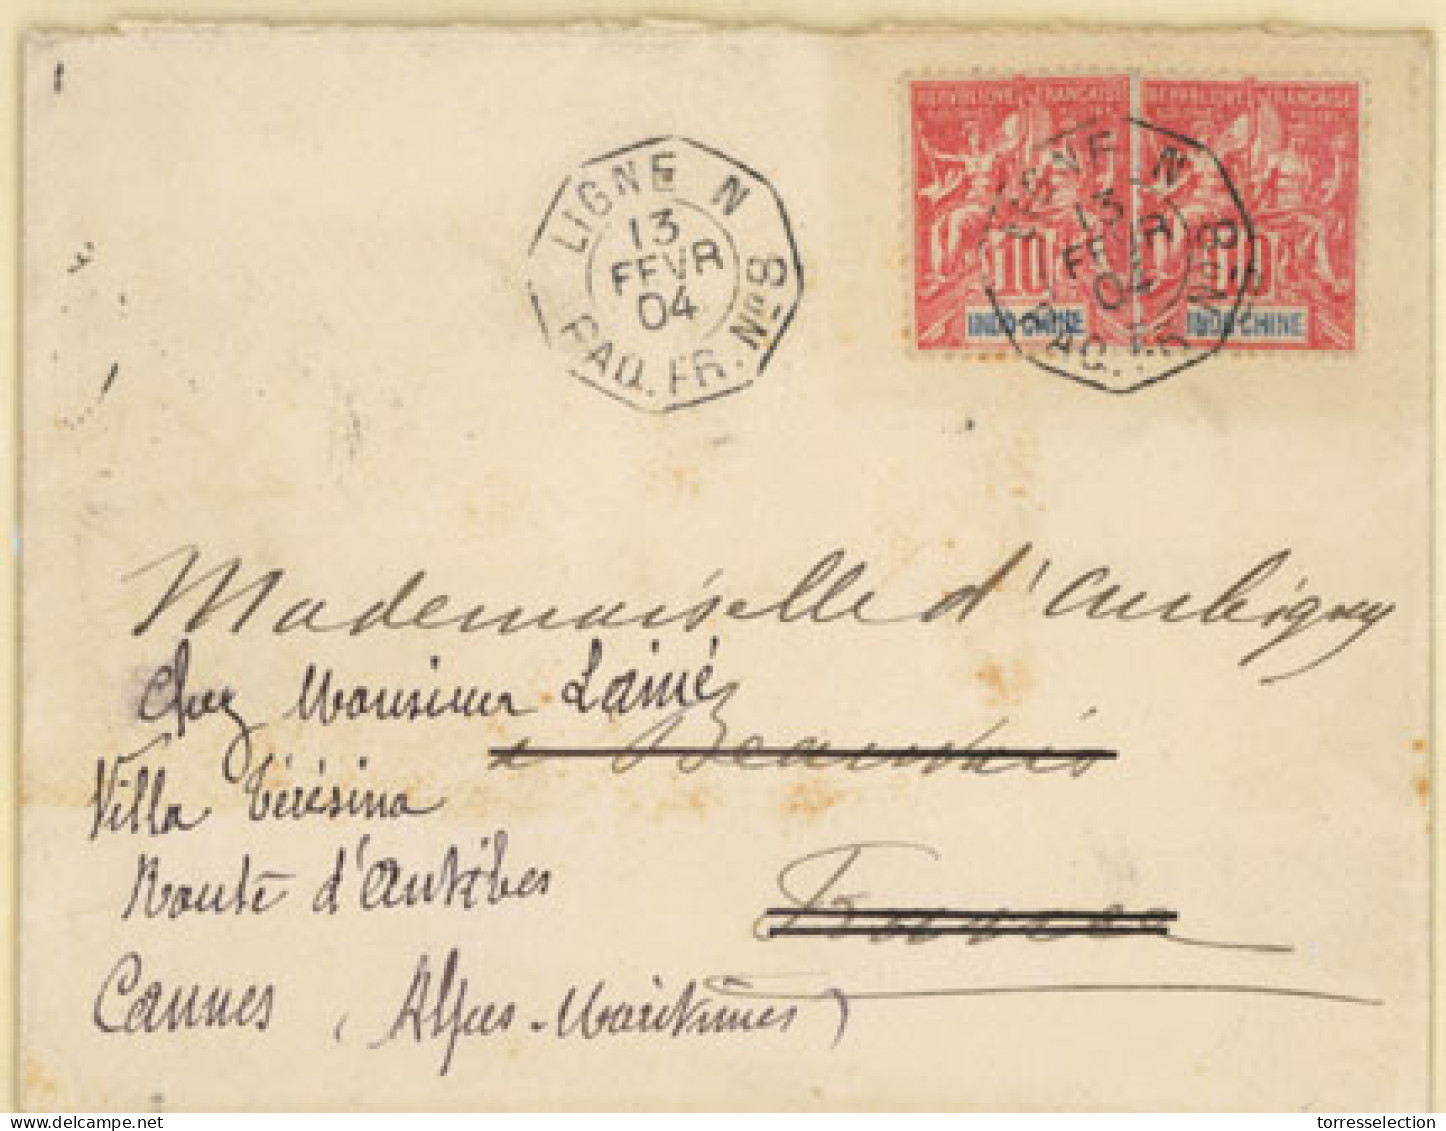 REPUBLIQUE FRANÇAISE REPUBLIQUE FRANÇAISE
10 10
INDO-CHINE INDO-CHINE
LIGNE N
13
FEVR
04
PAQ. FR. Nº 8
LIGNE N
13
FEVR
04
PAQ. FR. Nº 8
Mademoiselle d'Aubigny
Chez Monsieur Lainé
à Beauvais
Villa Térésina
Route d'Antibes
France
Cannes (Alpes-Maritimes)
torresselection